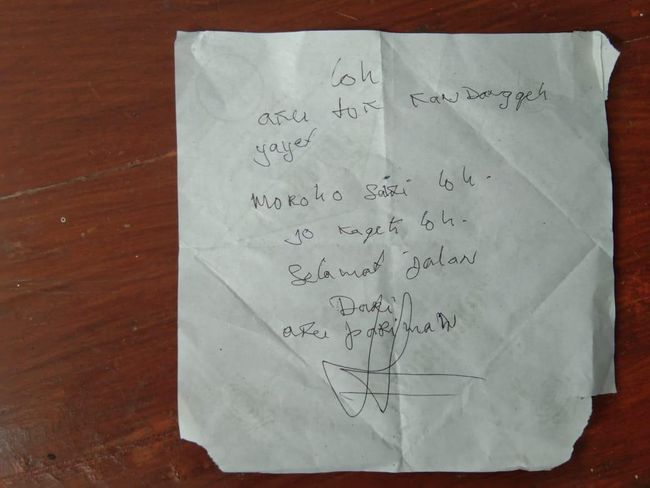 loh
aku tok kan Donggeh
yayet
moroho sari loh.
jo kageh loh.
Selamat Jalan
Dari
aku pariman